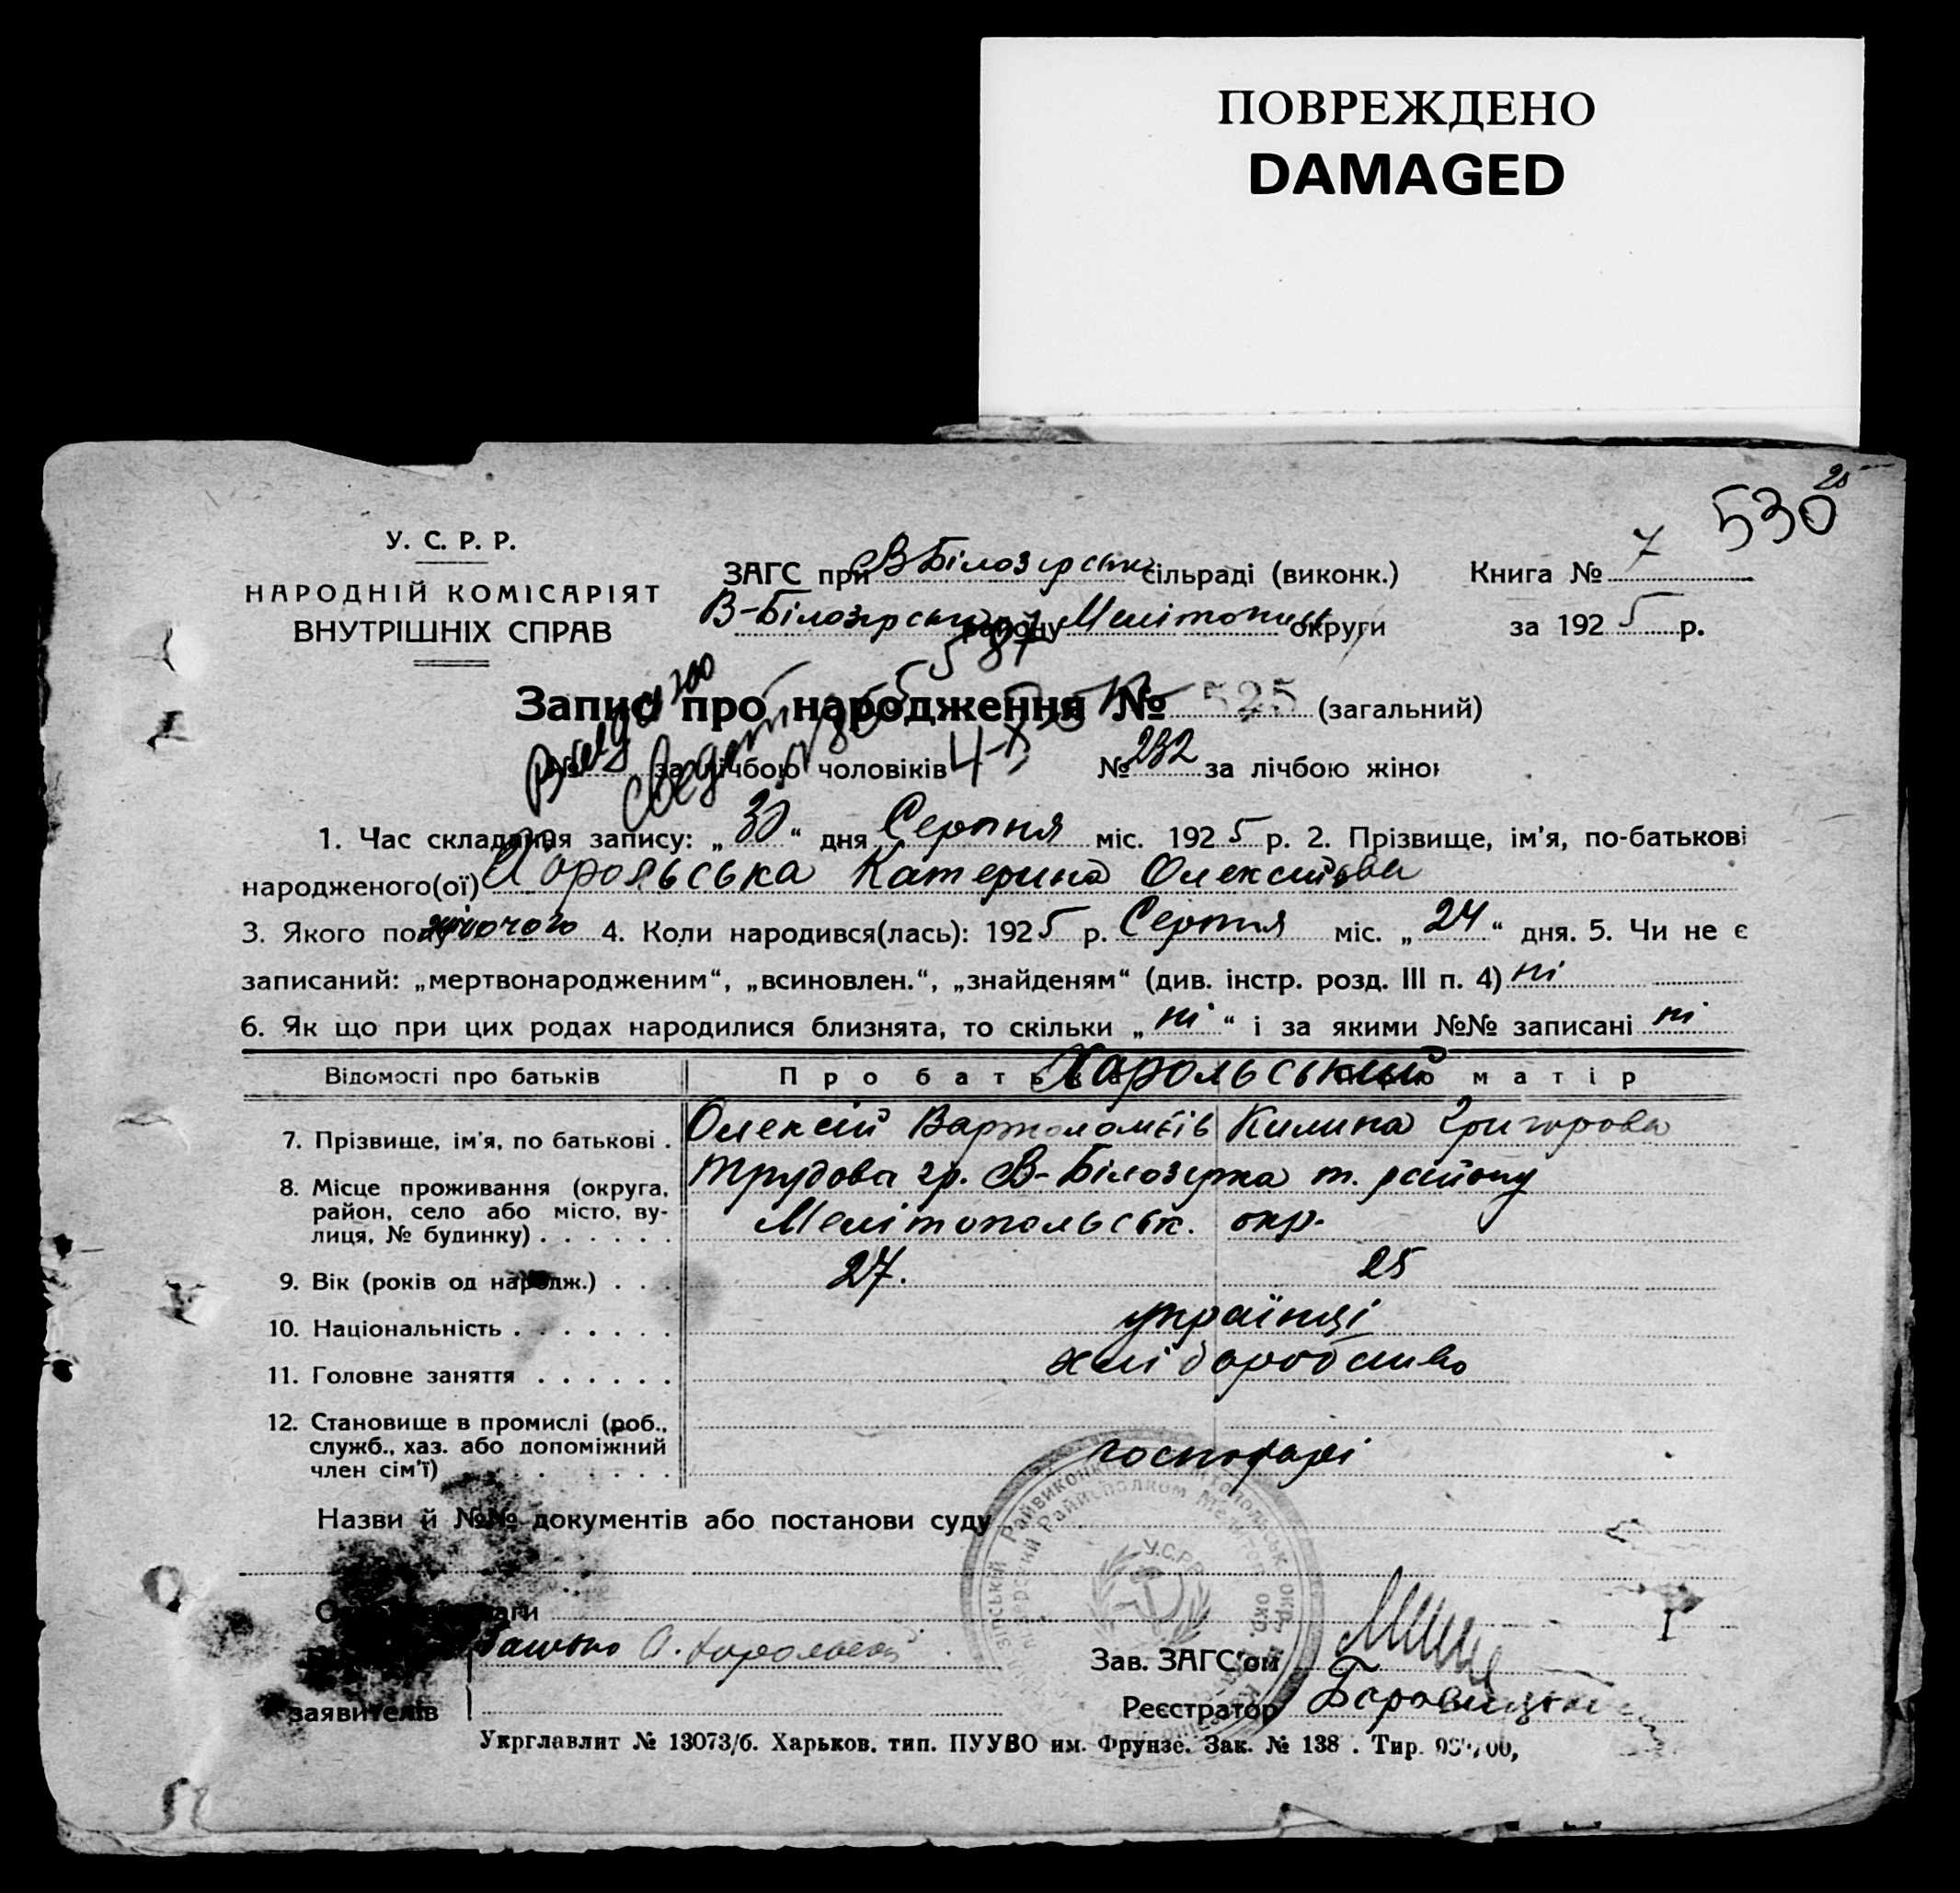 ПОВРЕЖДЕНО
DAMAGED
530
У. С. Р. Р.
НАРОДНІЙ КОМІСАРІЯТ
ВНУТРІШНІХ СПРАВ
ЗАГС при В Білозірськ сільраді (виконк.)
В-Білозірськ району Мелітопільськ округи
Книга № 7
за 1925 р.
Запис про народження № 525 (загальний)
№ за лічбою чоловіків № 232 за лічбою жінок
1. Час складання запису: „30“ дня Серпня міс. 1925 р. 2. Прізвище, ім’я, по-батькові
народженого(ої) Хорольська Катерина Олексіїва
3. Якого полу жіночого 4. Коли народився(лась): 1925 р. Серпня міс. „24“ дня. 5. Чи не є
записаний: „мертвонародженим“, „всиновлен.“, „знайденям“ (див. інстр. розд. III п. 4) ні
6. Як що при цих родах народилися близнята, то скільки „ні“ і за якими №№ записані ні
Відомості про батьків Про батька Про матір
Харольський
7. Прізвище, ім’я, по батькові . Олексій Вартоломѣів Килина Григорова
8. Місце проживання (округа, район, село або місто, вулиця, № будинку) . . . . . . Трудова гр. В-Білозірка т. району
Мелітопольськ. окр.
9. Вік (років од народж.) . . . 27. 25
10. Національність . . . . . . . українці
11. Головне заняття . . . . . . хліборобство
12. Становище в промислі (роб.,
служб., хаз. або допоміжний
член сім’ї) . . . . . . . . . господарі
Назви й №№ документів або постанови суду
заявителів
батько О. Хорольский
Зав. ЗАГС’ом
Реєстратор
У.С.Р.Р.
Укрглавлит № 13073/б. Харьков, тип. ПУУВО им. Фрунзе. Зак. № 138 . Тир.